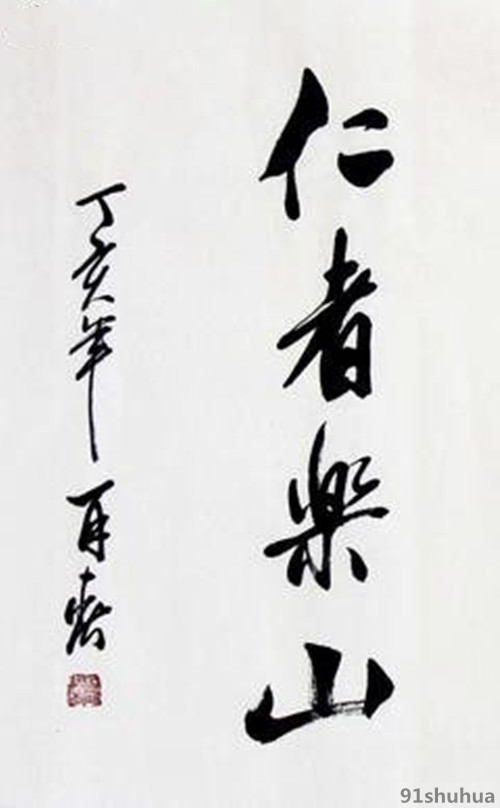 仁者樂山
丁亥年
91shuhua